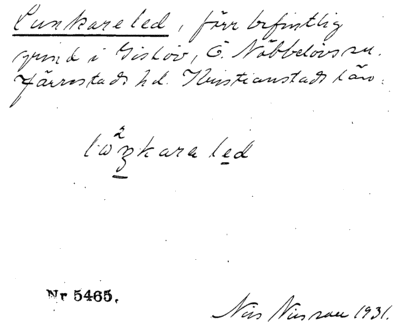 Lunkare led, förr befintlig
grind i Gislöv, Ö. Nöbbelövs sn.
Järrestads hd. Kristianstads län.
led
Nr 5465.
Nils Nilsson 1931.